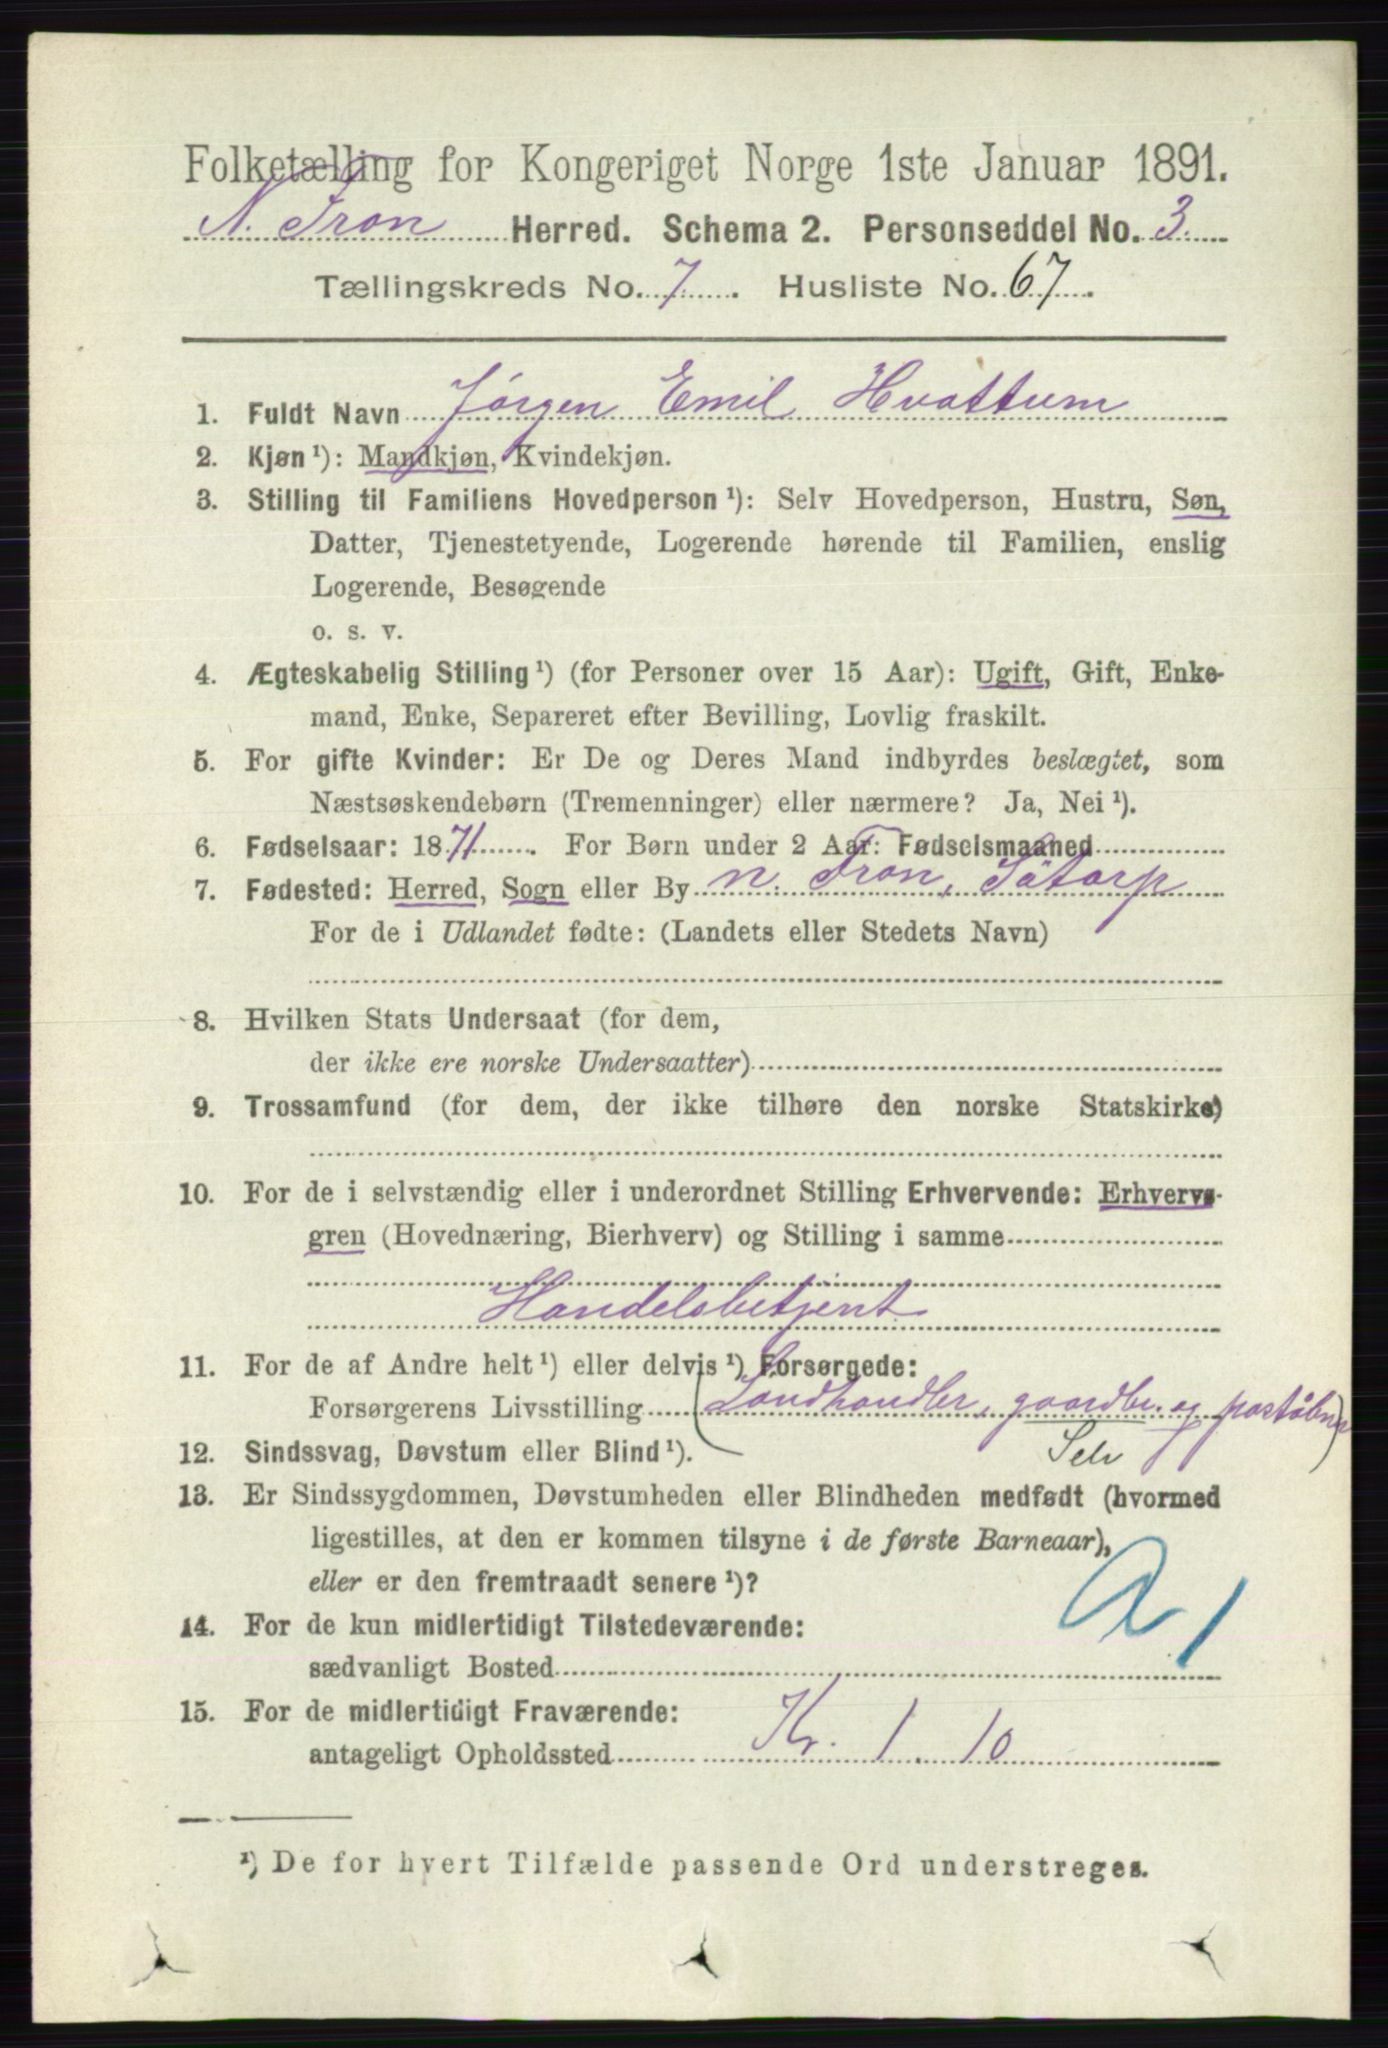 Folketælling for Kongeriget Norge 1ste Januar 1891.
N. Fron Herred. Schema 2. Personseddel No. 3.
Tællingskreds No. 7. Husliste No. 67.
1. Fuldt Navn Jørgen Emil Hvattum
2. Kjøn ¹): Mandkjøn, Kvindekjøn.
3. Stilling til Familiens Hovedperson ¹): Selv Hovedperson, Hustru, Søn,
Datter, Tjenestetyende, Logerende hørende til Familien, enslig
Logerende, Besøgende
o. s. v.
4. Ægteskabelig Stilling ¹) (for Personer over 15 Aar): Ugift, Gift, Enke-
mand, Enke, Separeret efter Bevilling, Lovlig fraskilt.
5. For gifte Kvinder: Er De og Deres Mand indbyrdes beslægtet, som
Næstsøskendebørn (Tremenninger) eller nærmere? Ja, Nei ¹).
6. Fødselsaar: 1871. For Børn under 2 Aar: Fødselsmaaned
7. Fødested: Herred, Sogn eller By n. Fron, Sötorp
For de i Udlandet fødte: (Landets eller Stedets Navn)
8. Hvilken Stats Undersaat (for dem,
der ikke ere norske Undersaatter)
9. Trossamfund (for dem, der ikke tilhøre den norske Statskirke)
10. For de i selvstændig eller i underordnet Stilling Erhvervende: Erhvervs-
gren (Hovednæring, Bierhverv) og Stilling i samme
Handelsbetjent
11. For de af Andre helt ¹) eller delvis ¹) Forsørgede:
Forsørgerens Livsstilling (Landhandler, gaardbr. og poståbner)
12. Sindssvag, Døvstum eller Blind ¹). Selv
13. Er Sindssygdommen, Døvstumheden eller Blindheden medfødt (hvormed
ligestilles, at den er kommen tilsyne i de første Barneaar),
eller er den fremtraadt senere ¹)?
14. For de kun midlertidigt Tilstedeværende:
sædvanligt Bosted
15. For de midlertidigt Fraværende:
antageligt Opholdssted Kr. 1. 10
¹) De for hvert Tilfælde passende Ord understreges.